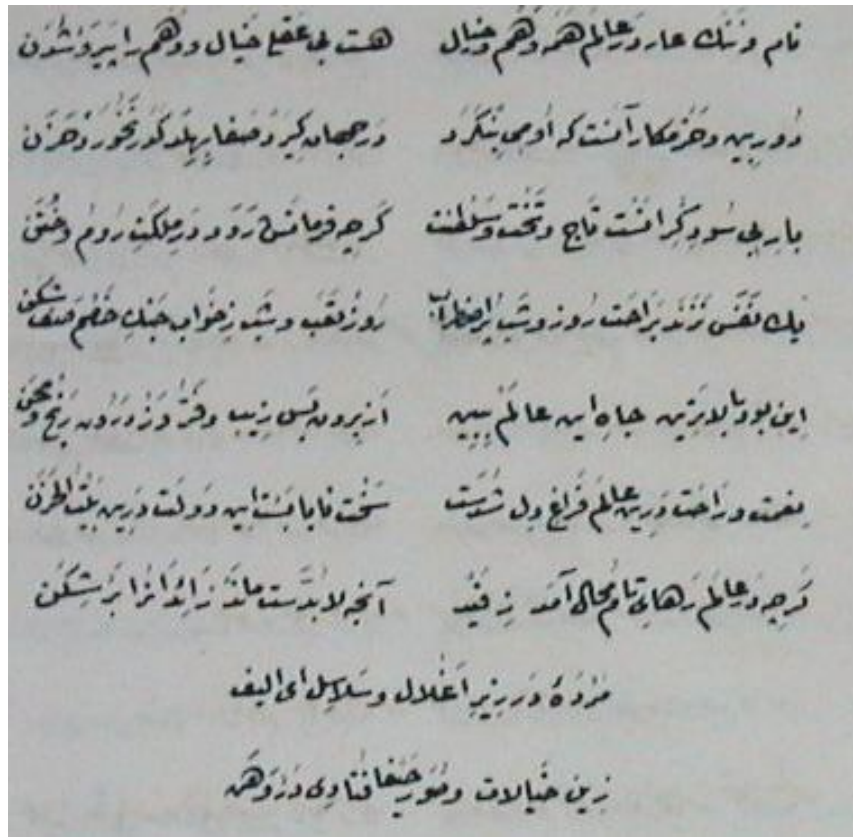 نام و ننگ عار در عالم همه وهم و خیال هست بی عقلی خیال و وهم را پیرو شدن
دوربین و حزمکار آنست که او می ننگرد در جهان گیر و صفا بهلد کدر نخورد حزن
بار بی سود گرانست تاج و تخت و سلطنت گرچه فرمانش رود در ملکت روم و ختن
یک نفس نزند براحت روز و شب پر اضطراب روز تعب و شب ز خواب جنگ خصم صف شکن
این بود بالاترین جاه این عالم ببین از برون بس زیب و فر و ز درون رنج و محن
نعمت و راحت درین عالم فراغ دل شدست سخت نایابست این دولت درین بیت الحزن
گرچه در عالم رهایی تام محال آمد ز قید آنچه لابدست ماند زائد انرا برشکن
در زیر اغلال و سلاسل ای الیف
زین خیالات و صور حیفا فتادی در وهن